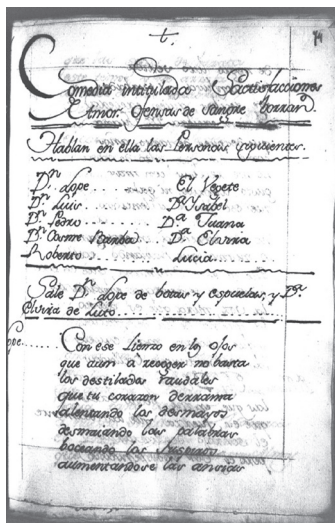 t.
14
Comedia intitulada Sactisfacciones
de Amor. Ofensas de sangre borran
Hablan en ella las Personas siguientes.
Dn. Lope...... El Vegete
Dn. Luis...... Da. Isabel
Dn. Pedro...... Da. Juana
Dn. Cosme Bamba Da. Elvira
Roberto...... Lucia
Sale Dn. Lope de botas y espuelas, y Da.
Elvira de Luto.
Lope..... Con ese Lienzo en los ojos
que aum á recoger no basta
los destilados raudales
que tu corazon derrama
alentando los desmayos
desmaiando las palabras
los suspiros
aumentandose las ansias